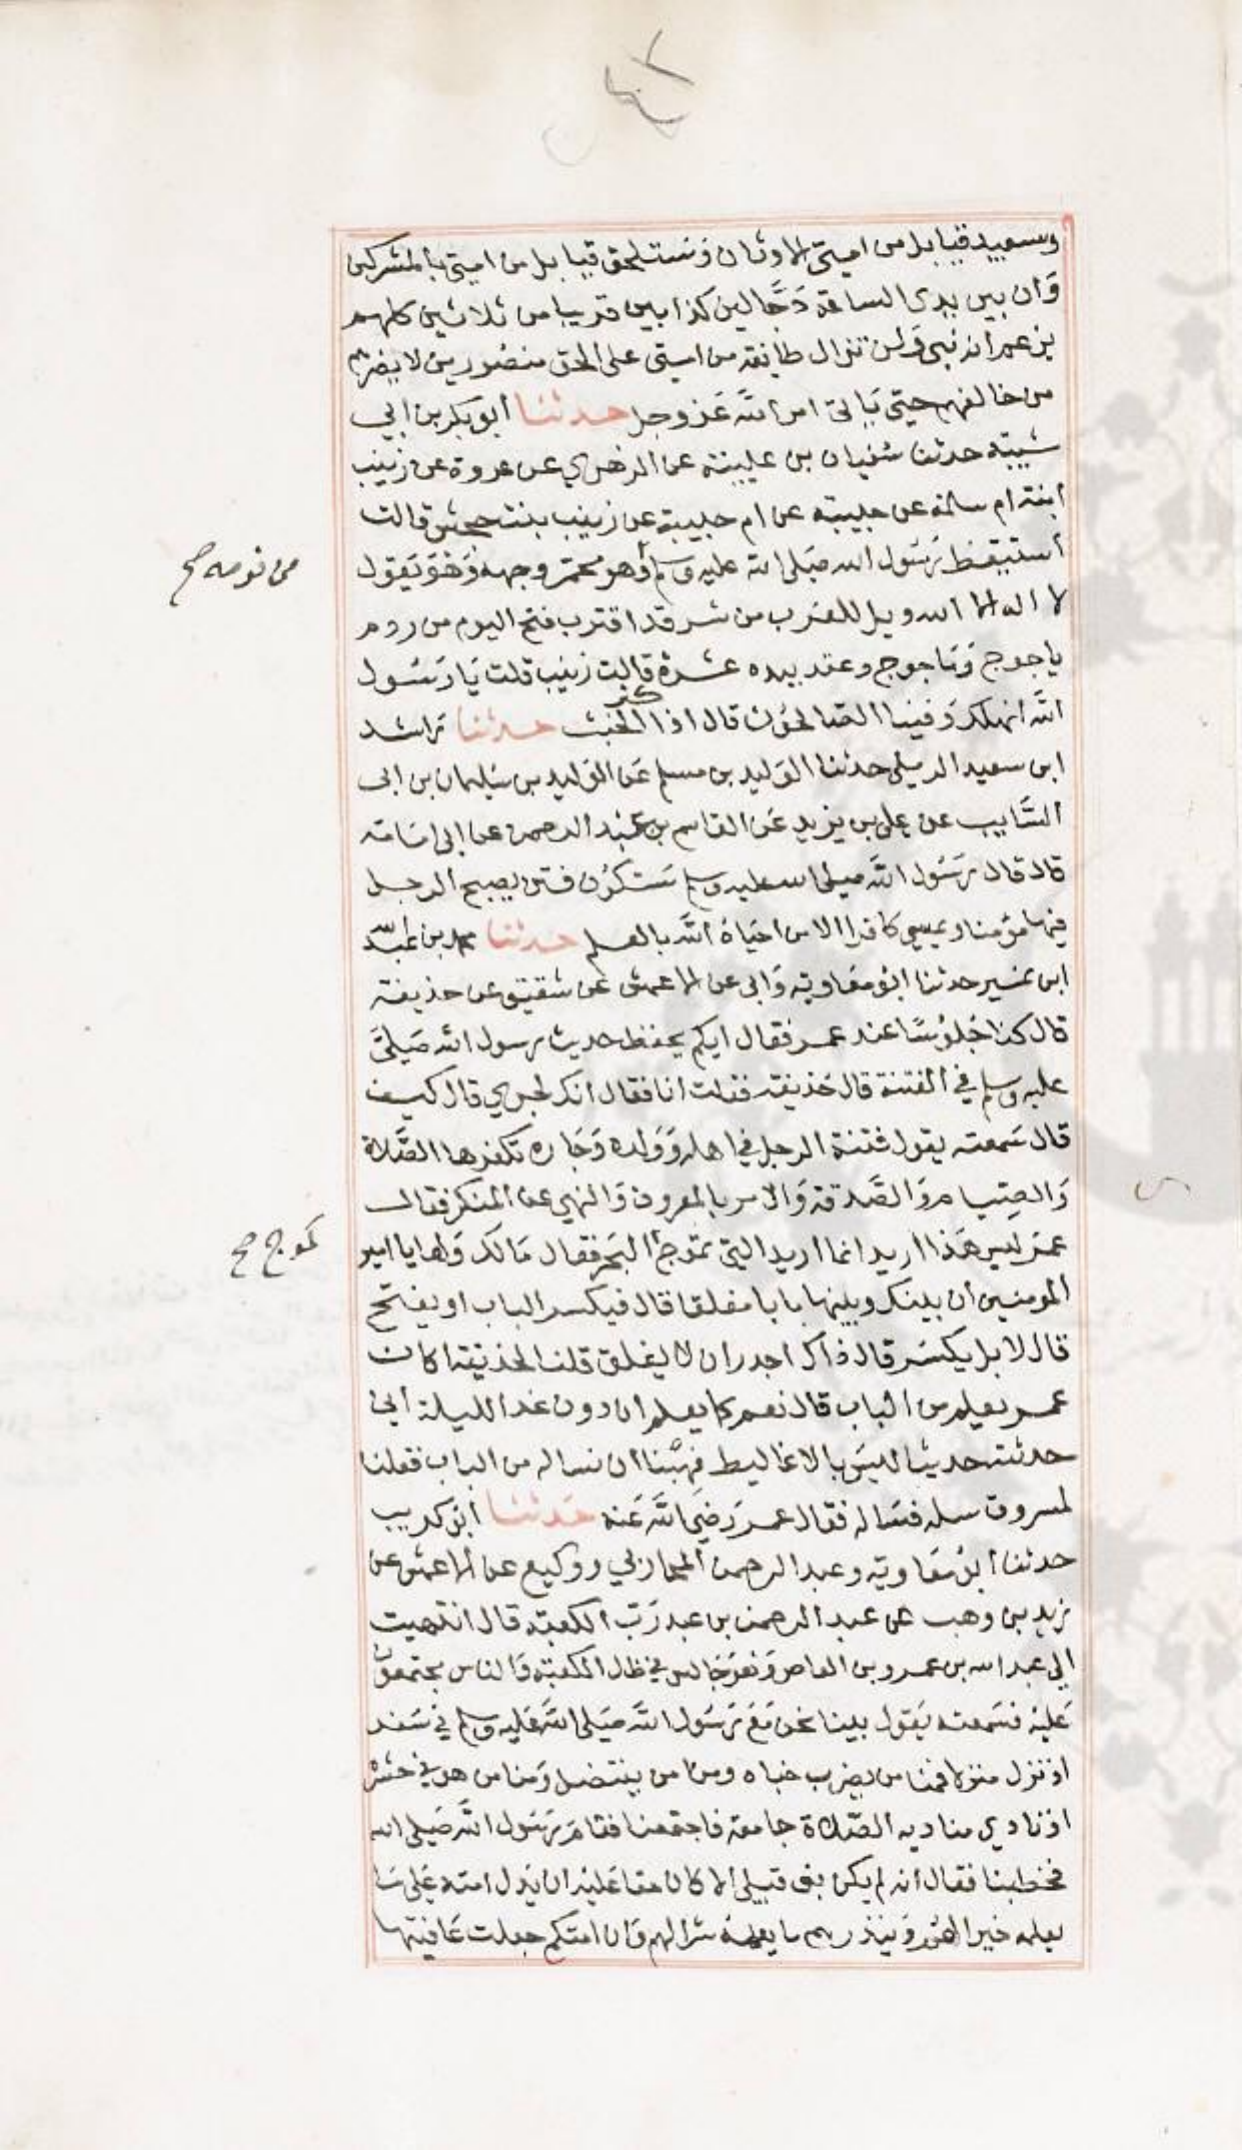 وسيعبد قبايل من امتي الاوثان وستلحق قبايل من امتي بالمشركين
وان بين يدي الساعة دجالين كذابين قريبا من ثلاثين كلهم
يزعم انه نبي ولن تزال طايفة من امتي على الحق منصورين لا يضرهم
من خالفهم حتى ياتي امر الله عز وجل حدثنا ابو بكر بن ابي
شيبة حدثنا سفيان بن عيينة عن الزهري عن عروة عن زينب
ابنة ام سلمة عن حبيبة عن ام حبيبة عن زينب بنت جحش قالت
استيقظ رسول الله صلى الله عليه وسلم وهو محمر وجهه وهو يقول
من نومه صح
لا اله الا الله ويل للعرب من شر قد اقترب فتح اليوم من ردم
ياجوج وماجوج وعقد بيده عشرة قالت زينب قلت يا رسول
الله انهلك وفينا الصالحون قال اذا كثر الخبث حدثنا راشد
ابن سعيد الرملي حدثنا الوليد بن مسلم عن الوليد بن سليمان بن ابي
السايب عن علي بن يزيد عن القاسم بن عبد الرحمن عن ابي امامة
قال قال رسول الله صلى الله عليه وسلم ستكون فتن يصبح الرجل
فيها مؤمنا ويمسي كافرا الا من احياه الله بالعلم حدثنا محمد بن عبد الله
ابن نمير حدثنا ابو معاوية وابي عن الاعمش عن شقيق عن حذيفة
قال كنا جلوسا عند عمر فقال ايكم يحفظ حديث رسول الله صلى
عليه وسلم في الفتنة قال حذيفة فقلت انا فقال انك لجري قال كيف
قال سمعته يقول فتنة الرجل في اهله وولده وجاره تكفرها الصلاة
والصيام والصدقة والامر بالمعروف والنهي عن المنكر فقال
عمر ليس هذا اريد انما اريد التي تموج البحر فقال مالك ولها يا امير
كموج صح
المومنين ان بينك وبينها بابا مغلقا قال فيكسر الباب او يفتح
قال لا بل يكسر قال ذاك اجدر ان لا يغلق قلنا لحذيفة اكان
عمر يعلم من الباب قال نعم كما يعلم ان دون غد الليلة اني
حدثته حديثا ليس بالاغاليط فهبنا ان نساله من الباب فقلنا
لمسروق سله فساله فقال عمر رضي الله عنه حدثنا ابو كريب
حدثنا ابو معاوية وعبد الرحمن المحاربي ووكيع عن الاعمش عن
زيد بن وهب عن عبد الرحمن بن عبد رب الكعبة قال انتهيت
الى عبد الله بن عمرو بن العاص وهو جالس في ظل الكعبة والناس مجتمعون
عليه فسمعته يقول بينا نحن مع رسول الله صلى الله عليه وسلم في سفر
اذ نزل منزلا فمنا من يضرب خباه ومنا من ينتضل ومنا من هو في جشره
اذ نادي مناديه الصلاة جامعة فاجتمعنا فقام رسول الله صلى الله
فخطبنا فقال انه لم يكن نبي قبلي الا كان حقا عليه ان يدل امته على ما
يعلمه خيرا لهم وينذرهم ما يعلمه شرا لهم وان امتكم جعلت عافيتها